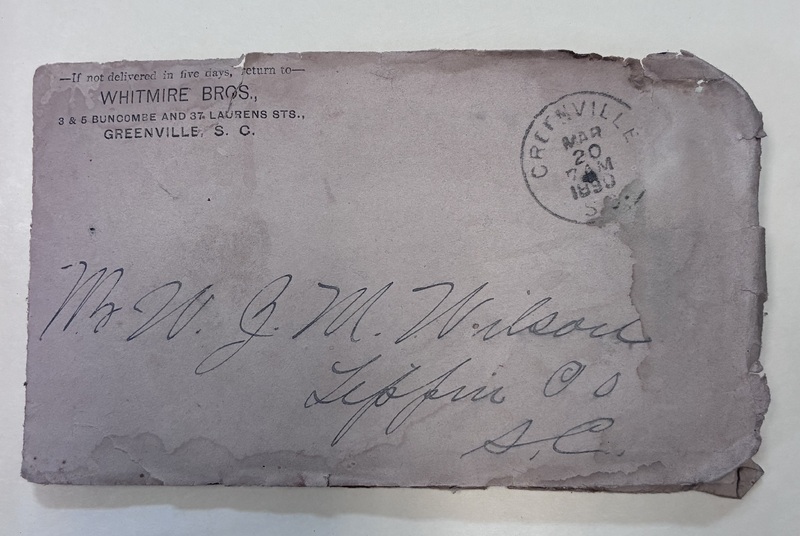 —If not delivered in five days, return to—
WHITMIRE BROS.,
3 & 5 BUNCOMBE AND 37 LAURENS STS.,
GREENVILLE, S. C.
GREENVILLE
MAR
20
7 AM
1890
S.C.
Mr W. J. M. Wilson
P O
S.C.